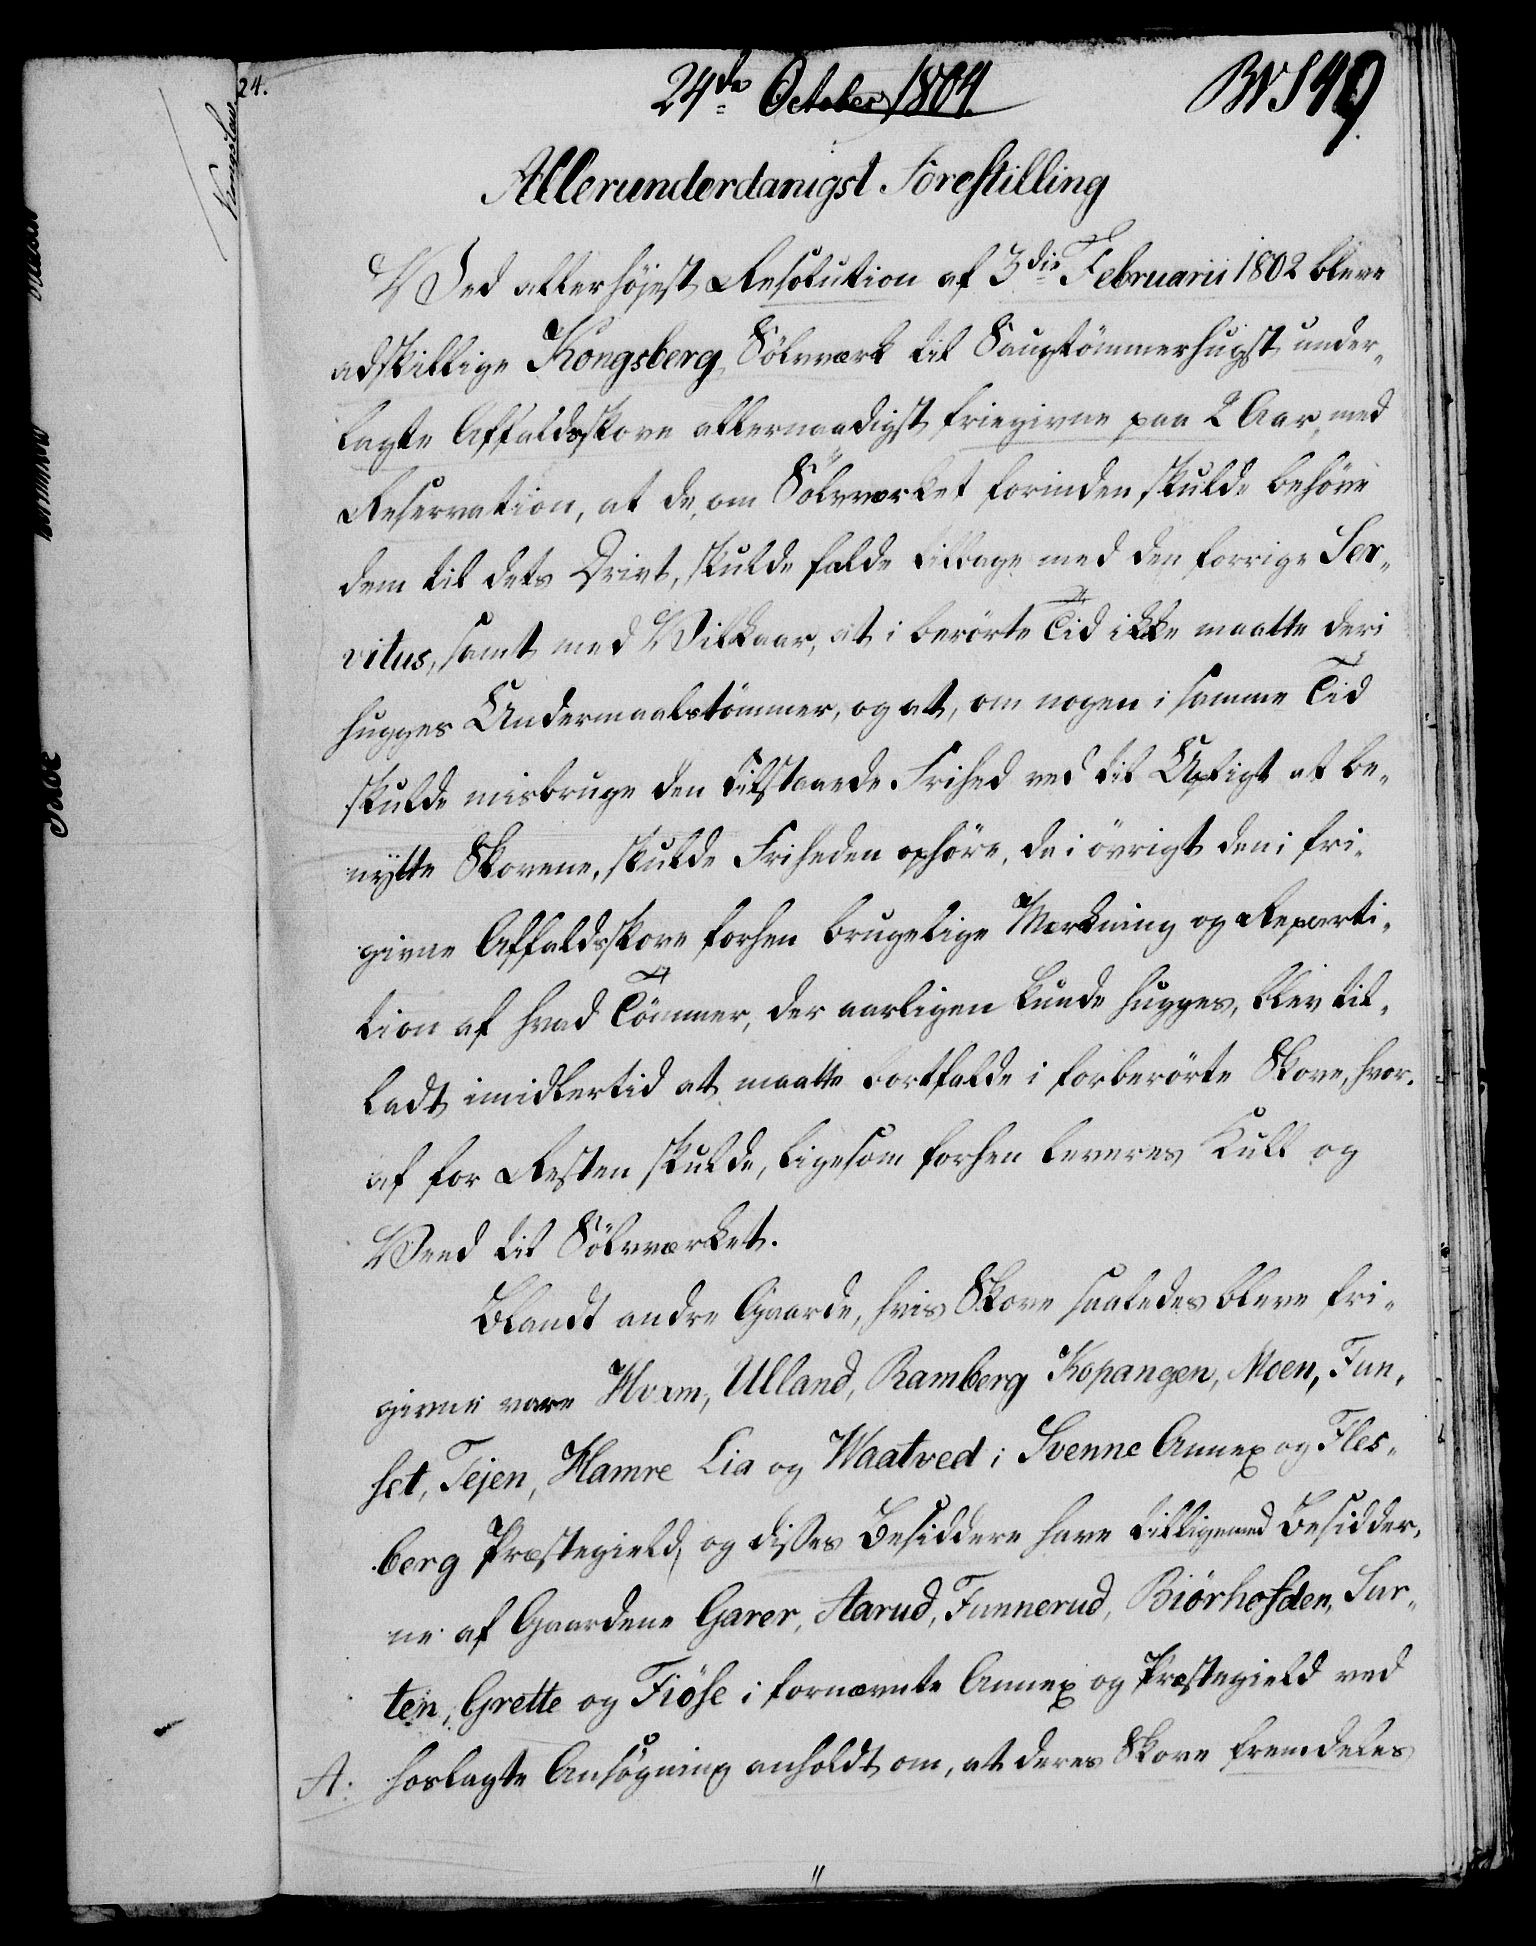 24.
24de October 1804.
Allerunderdanigst Forestilling
Ved allerhöjest Resolution af 3die Februarii 1802 bleve
adskillige Kongsberg Sölvværk til Saugtömmerhugst under-
lagte Affaldsskove allernaadigst friegivne paa 2 Aar, med
Reservation, at de, om Sölvværket forinden skulde behöve
dem til dets Drivt, skulde falde tilbage med den forrige Ser-
vitus, samt med Vilkaar, at i berörte Tid ikke maatte deri
hugges Undermaalstömmer, og at, om nogen i samme Tid
skulde misbruge den tilstaaede Frihed ved til Upligt at be-
nytte Skovene, skulde Friheden ophöre, da i övrigt den i fri-
givne Affaldsskove forhen brugelige Mærkning og Reparti-
tion af hvad Tömmer, der aarligen kunde hugges, blev til-
ladt imidlertid at maatte bortfalde i forberörte Skove, hvor-
af for Resten skulde, ligesom forhen leveres Kull og
Veed til Sölvværket.
Blandt andre Gaarde, hvis Skove saaledes bleve fri-
givne vare Hvam, Ulland, Ramberg Kopangen, Moen, Fun-
set, Tejen, Hamre Lia og Waatved i Svenne Annex og Fles-
berg Præstegield, og disses Besiddere have tilligemed Besidder-
ne af Gaardene Garer, Aarud, Funnerud, Biörhofden, Sur-
ten, Grette og Fiöse i fornævnte Annex og Præstegield ved
A. hoslagte Ansögning anholdt om, at deres Skove fremdeles